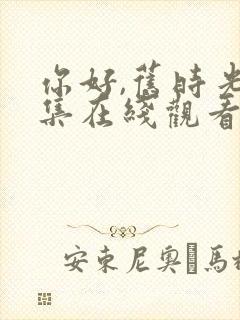 你好,舊時光
集在綫觀看
安東尼奧�馬